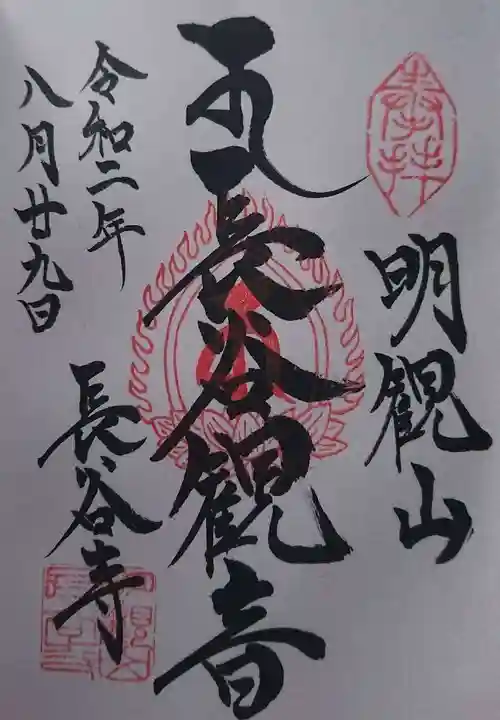 奉拝
明観山
長谷観音
令和二年
八月廿九日
長谷寺